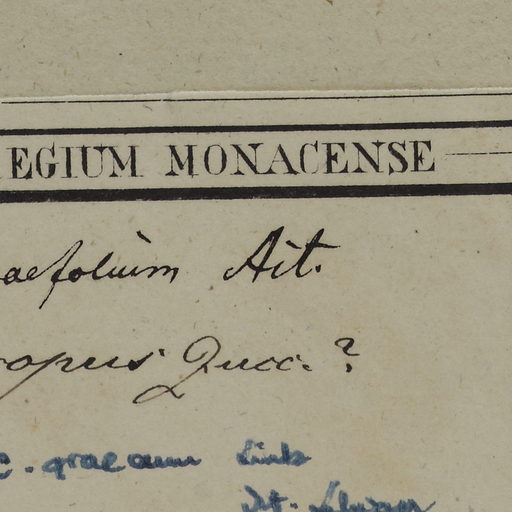 EGIUM MONACENSE
aefolium Ait.
opus Zucc. ?
c. graecum Link